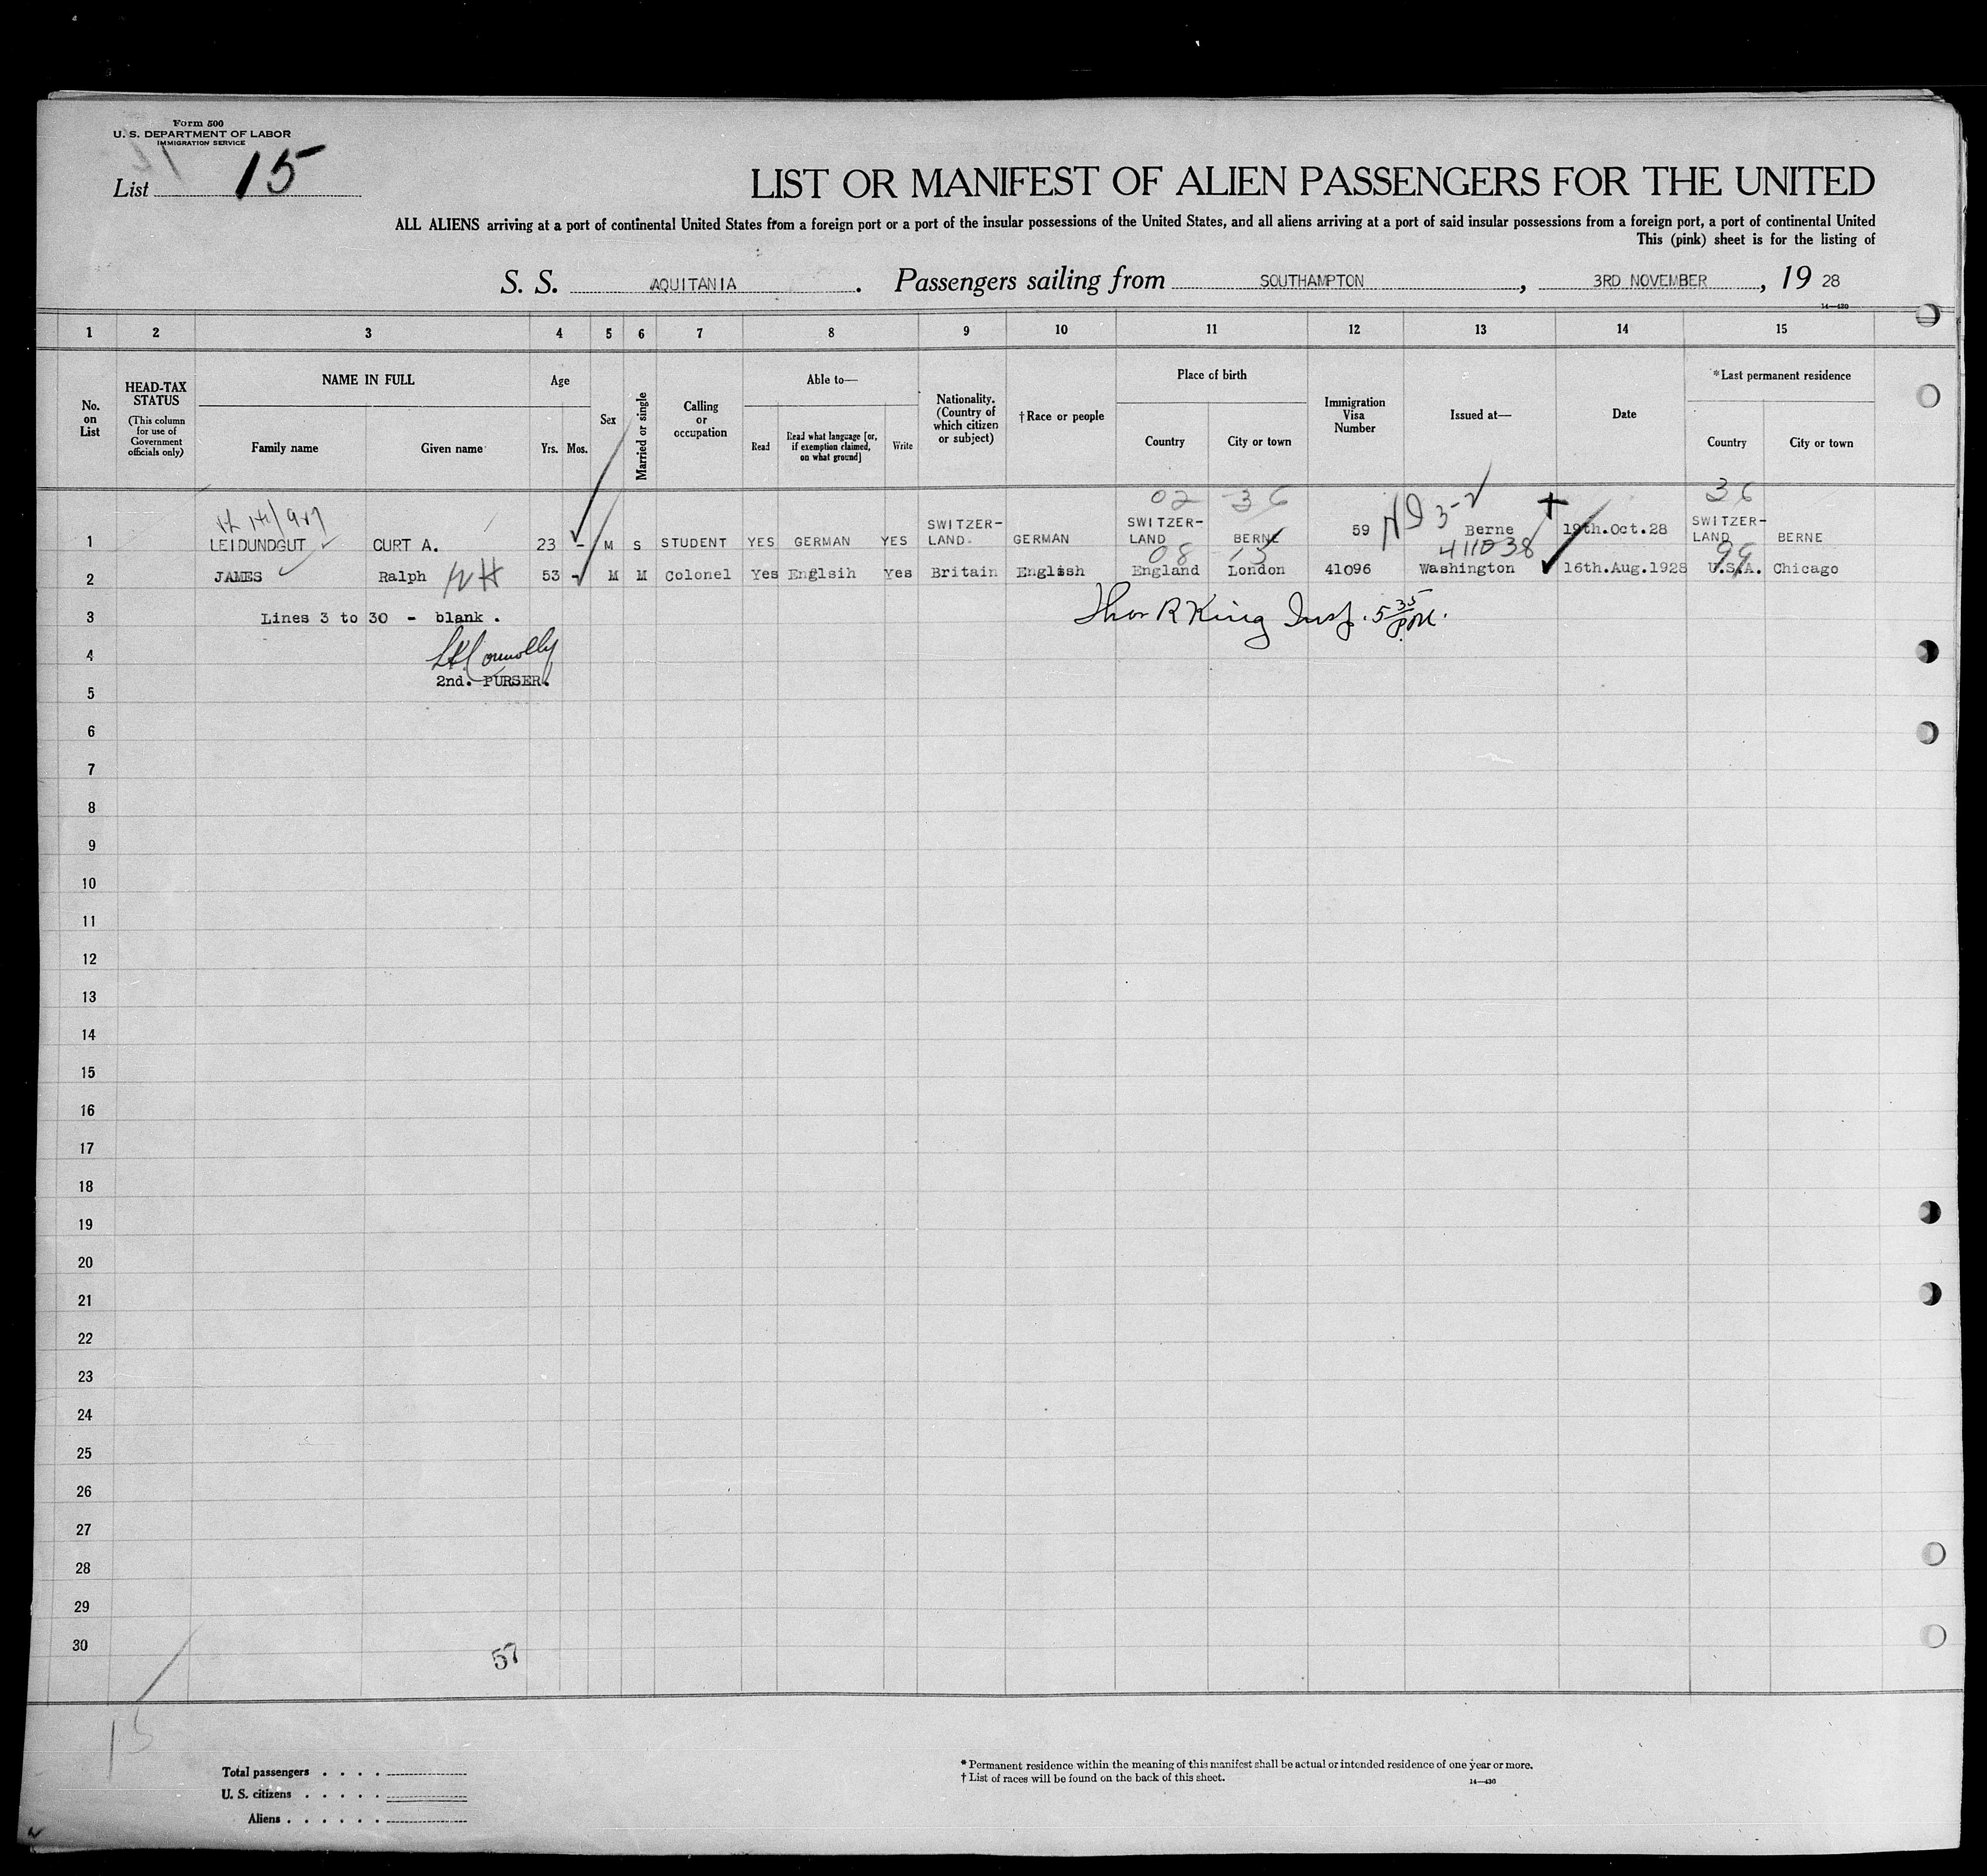 Form 500
U. S. DEPARTMENT OF LABOR
IMMIGRATION SERVICE
List 15
LIST OR MANIFEST OF ALIEN PASSENGERS FOR THE UNITED
ALL ALIENS arriving at a port of continental United States from a foreign port or a port of the insular possessions of the United States, and all aliens arriving at a port of said insular possessions from a foreign port, a port of continental United
This (pink) sheet is for the listing of
S. S. AQUITANIA. Passengers sailing from SOUTHAMPTON, 3RD NOVEMBER, 19 28
14—430
1 2 3 4 5 6 7 8 9 10 11 12 13 14 15
No. on List
HEAD-TAX STATUS
(This column for use of Government officials only)
NAME IN FULL
Family name Given name
Age
Yrs. Mos.
Sex
Married or single
Calling or occupation
Able to—
Read Read what language [or, if exemption claimed, on what ground] Write
Nationality. (Country of which citizen or subject)
†Race or people
Place of birth
Country City or town
Immigration Visa Number
Issued at—
Date
*Last permanent residence
Country City or town
02 36 36
1 LEIDUNDGUT CURT A. 23 - M S STUDENT YES GERMAN YES SWITZER-LAND. GERMAN SWITZER-LAND BERNE 59 Berne 19th.Oct.28 SWITZER-LAND BERNE
08 13 411038 99
2 JAMES Ralph 53 - M M Colonel Yes Englsih Yes Britain English England London 41096 Washington 16th.Aug.1928 U.S.A. Chicago
3 Lines 3 to 30 - blank . Thos R King Insp. 5 35 P.M.
4 Connolly
2nd. PURSER.
5
6
7
8
9
10
11
12
13
14
15
16
17
18
19
20
21
22
23
24
25
26
27
28
29
30
57
15
Total passengers . . . .
U. S. citizens . . . . .
Aliens . . . . . .
*Permanent residence within the meaning of this manifest shall be actual or intended residence of one year or more.
†List of races will be found on the back of this sheet.
14—430